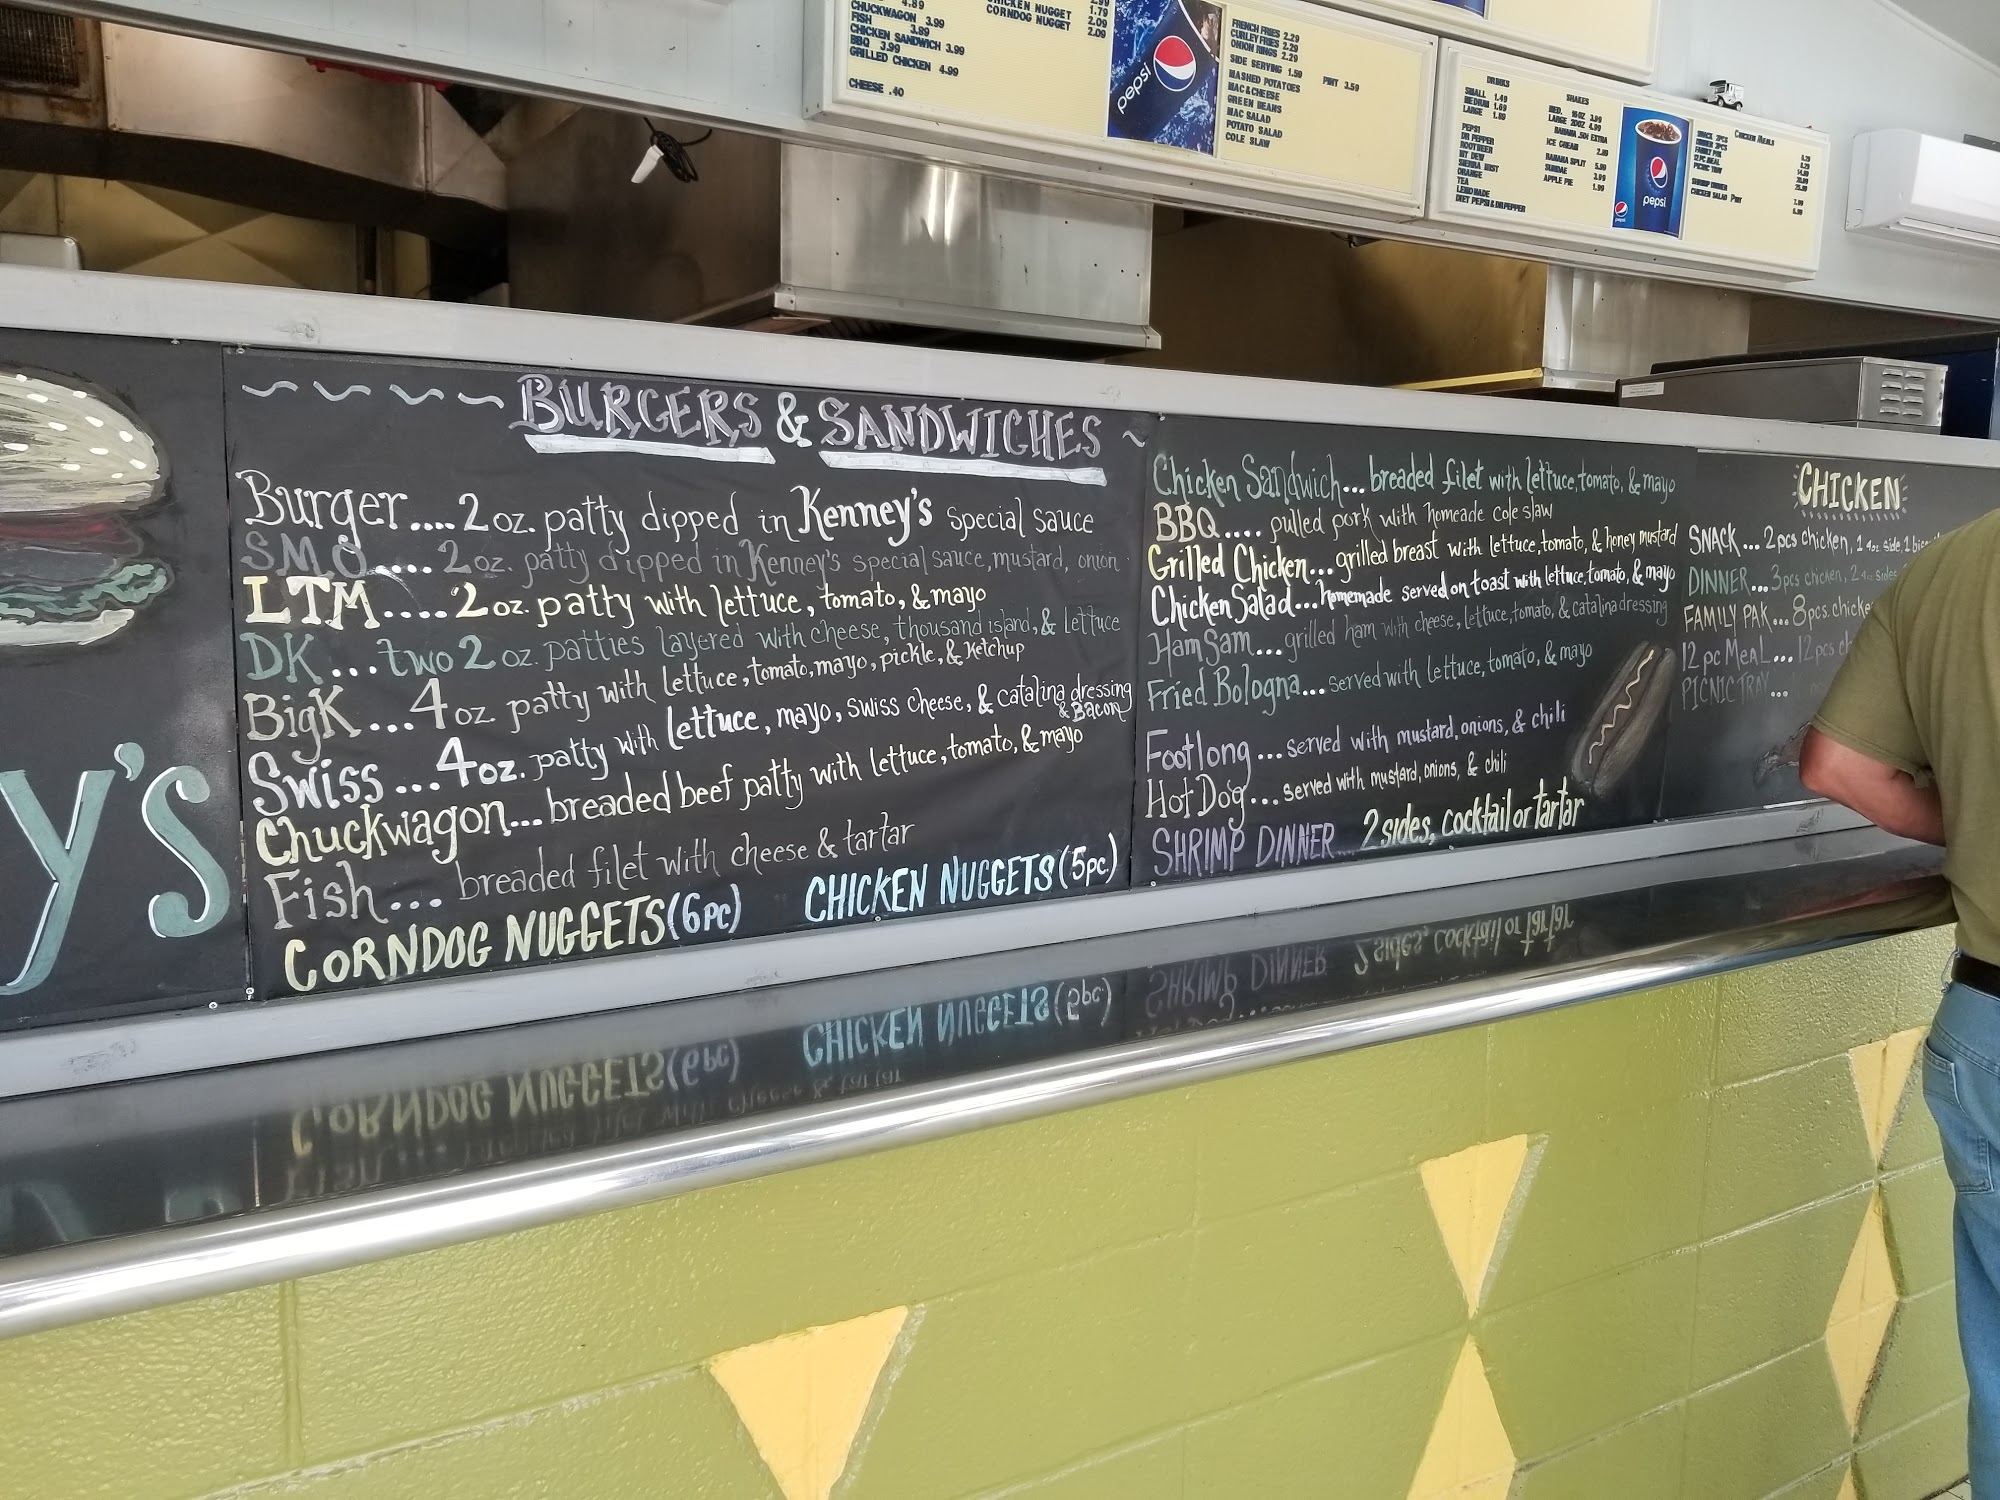 4.89
CHUCKWAGON 3.99
FISH 3.89
CHICKEN SANDWICH 3.99
BBQ 3.99
GRILLED CHICKEN 4.99
CHEESE .40
CHICKEN NUGGET 1.79
CORNDOG NUGGET 2.09
2.09
pepsi
FRENCH FRIES 2.29
CURLEY FRIES 2.29
ONION RINGS 2.29
SIDE SERVING 1.59 PINT 3.59
MASHED POTATOES
MAC & CHEESE
GREEN BEANS
MAC SALAD
POTATO SALAD
COLE SLAW
DRINKS
SMALL 1.49
MEDIUM 1.69
LARGE 1.89
PEPSI
DR PEPPER
ROOT BEER
MT DEW
SIERRA MIST
ORANGE
TEA
LEMONADE
DIET PEPSI & DR PEPPER
SHAKES
MED. 16OZ 3.99
LARGE 20OZ 4.99
BANANA .50¢ EXTRA
ICE CREAM
BANANA SPLIT
SUNDAE 3.99
APPLE PIE 1.99
pepsi
pepsi
CHICKEN MEALS
SNACK 2PCS
DINNER 3PCS
FAMILY PAK
12 PC MEAL
PICNIC TRAY
SHRIMP DINNER
CHICKEN SALAD PINT
y's
BURGERS & SANDWICHES
Burger.... 2 oz. patty dipped in Kenney's special sauce
SMO..... 2 oz. patty dipped in Kenney's special sauce, mustard, onion
LTM.... 2 oz. patty with lettuce, tomato, & mayo
DK... two 2 oz. patties layered with cheese, thousand island, & lettuce
BigK... 4 oz. patty with lettuce, tomato, mayo, pickle, & ketchup
Swiss... 4 oz. patty with lettuce, mayo, swiss cheese, & catalina dressing & Bacon
Chuckwagon... breaded beef patty with lettuce, tomato, & mayo
Fish... breaded filet with cheese & tartar
CORNDOG NUGGETS (6pc) CHICKEN NUGGETS (5pc)
Chicken Sandwich... breaded filet with lettuce, tomato, & mayo
BBQ.... pulled pork with homeade cole slaw
Grilled Chicken... grilled breast with lettuce, tomato, & honey mustard
Chicken Salad... homemade served on toast with lettuce, tomato, & mayo
Ham Sam... grilled ham with cheese, lettuce, tomato, & catalina dressing
Fried Bologna... served with lettuce, tomato, & mayo
Footlong... served with mustard, onions, & chili
Hot Dog... served with mustard, onions, & chili
SHRIMP DINNER... 2 sides, cocktail or tartar
CHICKEN
SNACK... 2pcs chicken, 1 4oz. side, 1
DINNER... 3pcs chicken, 2 4oz. sides
FAMILY PAK... 8pcs.
12 pc MEAL... 12pcs
PICNIC TRAY...